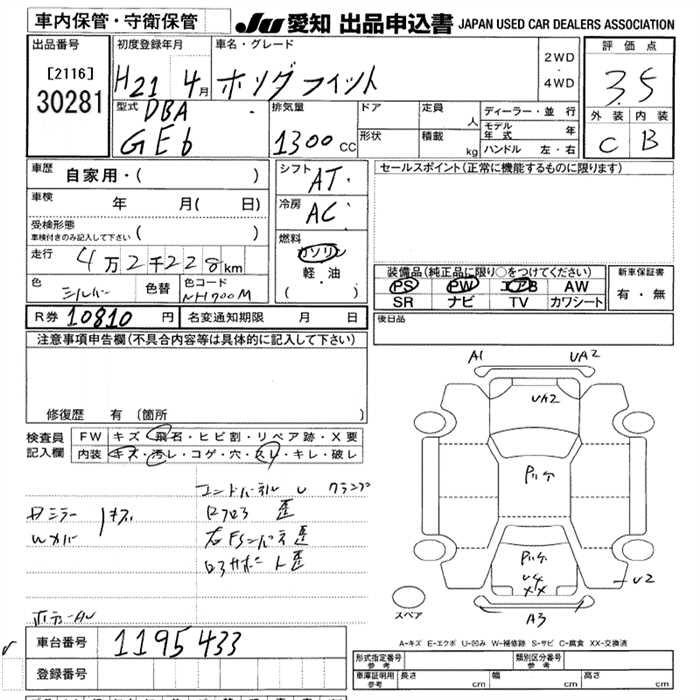 車内保管・守衛保管
JU 愛知 出品申込書 JAPAN USED CAR DEALERS ASSOCIATION
出品番号
[2116]
30281
初度登録年月
H21 4月
車名・グレード
ホンダフィット
2WD
・
4WD
評価点
3.5
外装 内装
C B
型式
DBA
GE6
排気量
1300cc
ドア
定員
人
形状
積載
kg
ディーラー・並行
モデル年式 年
ハンドル 左・右
車歴
自家用・( )
車検
年 月( 日)
受検形態
車検付きのみ記入して下さい ( )
走行
4万2千228km
色
シルバー
色替
色コード
NH700M
シフト
AT
冷房
AC
燃料
ガソリン
軽・油
( )
セールスポイント(正常に機能するものに限ります)
装備品(純正品に限り○をつけてください)
PS PW エアB AW
SR ナビ TV カワシート
新車保証書
有・無
R券 10810 円
名変通知期限 月 日
後日品
注意事項申告欄(不具合内容等は具体的に記入して下さい)
修復歴 有(箇所 )
検査員
記入欄
FW キズ・飛石・ヒビ割・リペア跡・X要
内装 キズ・汚レ・コゲ・穴・スレ・キレ・破レ
A1
UA2
UA2
Pいた
Pいた
U4
XX
U2
A3
スペア
A-キズ E-エクボ U-凹み W-補修跡 S-サビ C-腐食 XX-交換済
車台番号 1195433
登録番号
形式指定番号
参考
類別区分番号
参考
車庫証明用
参考
長さ cm
幅 cm
高さ cm